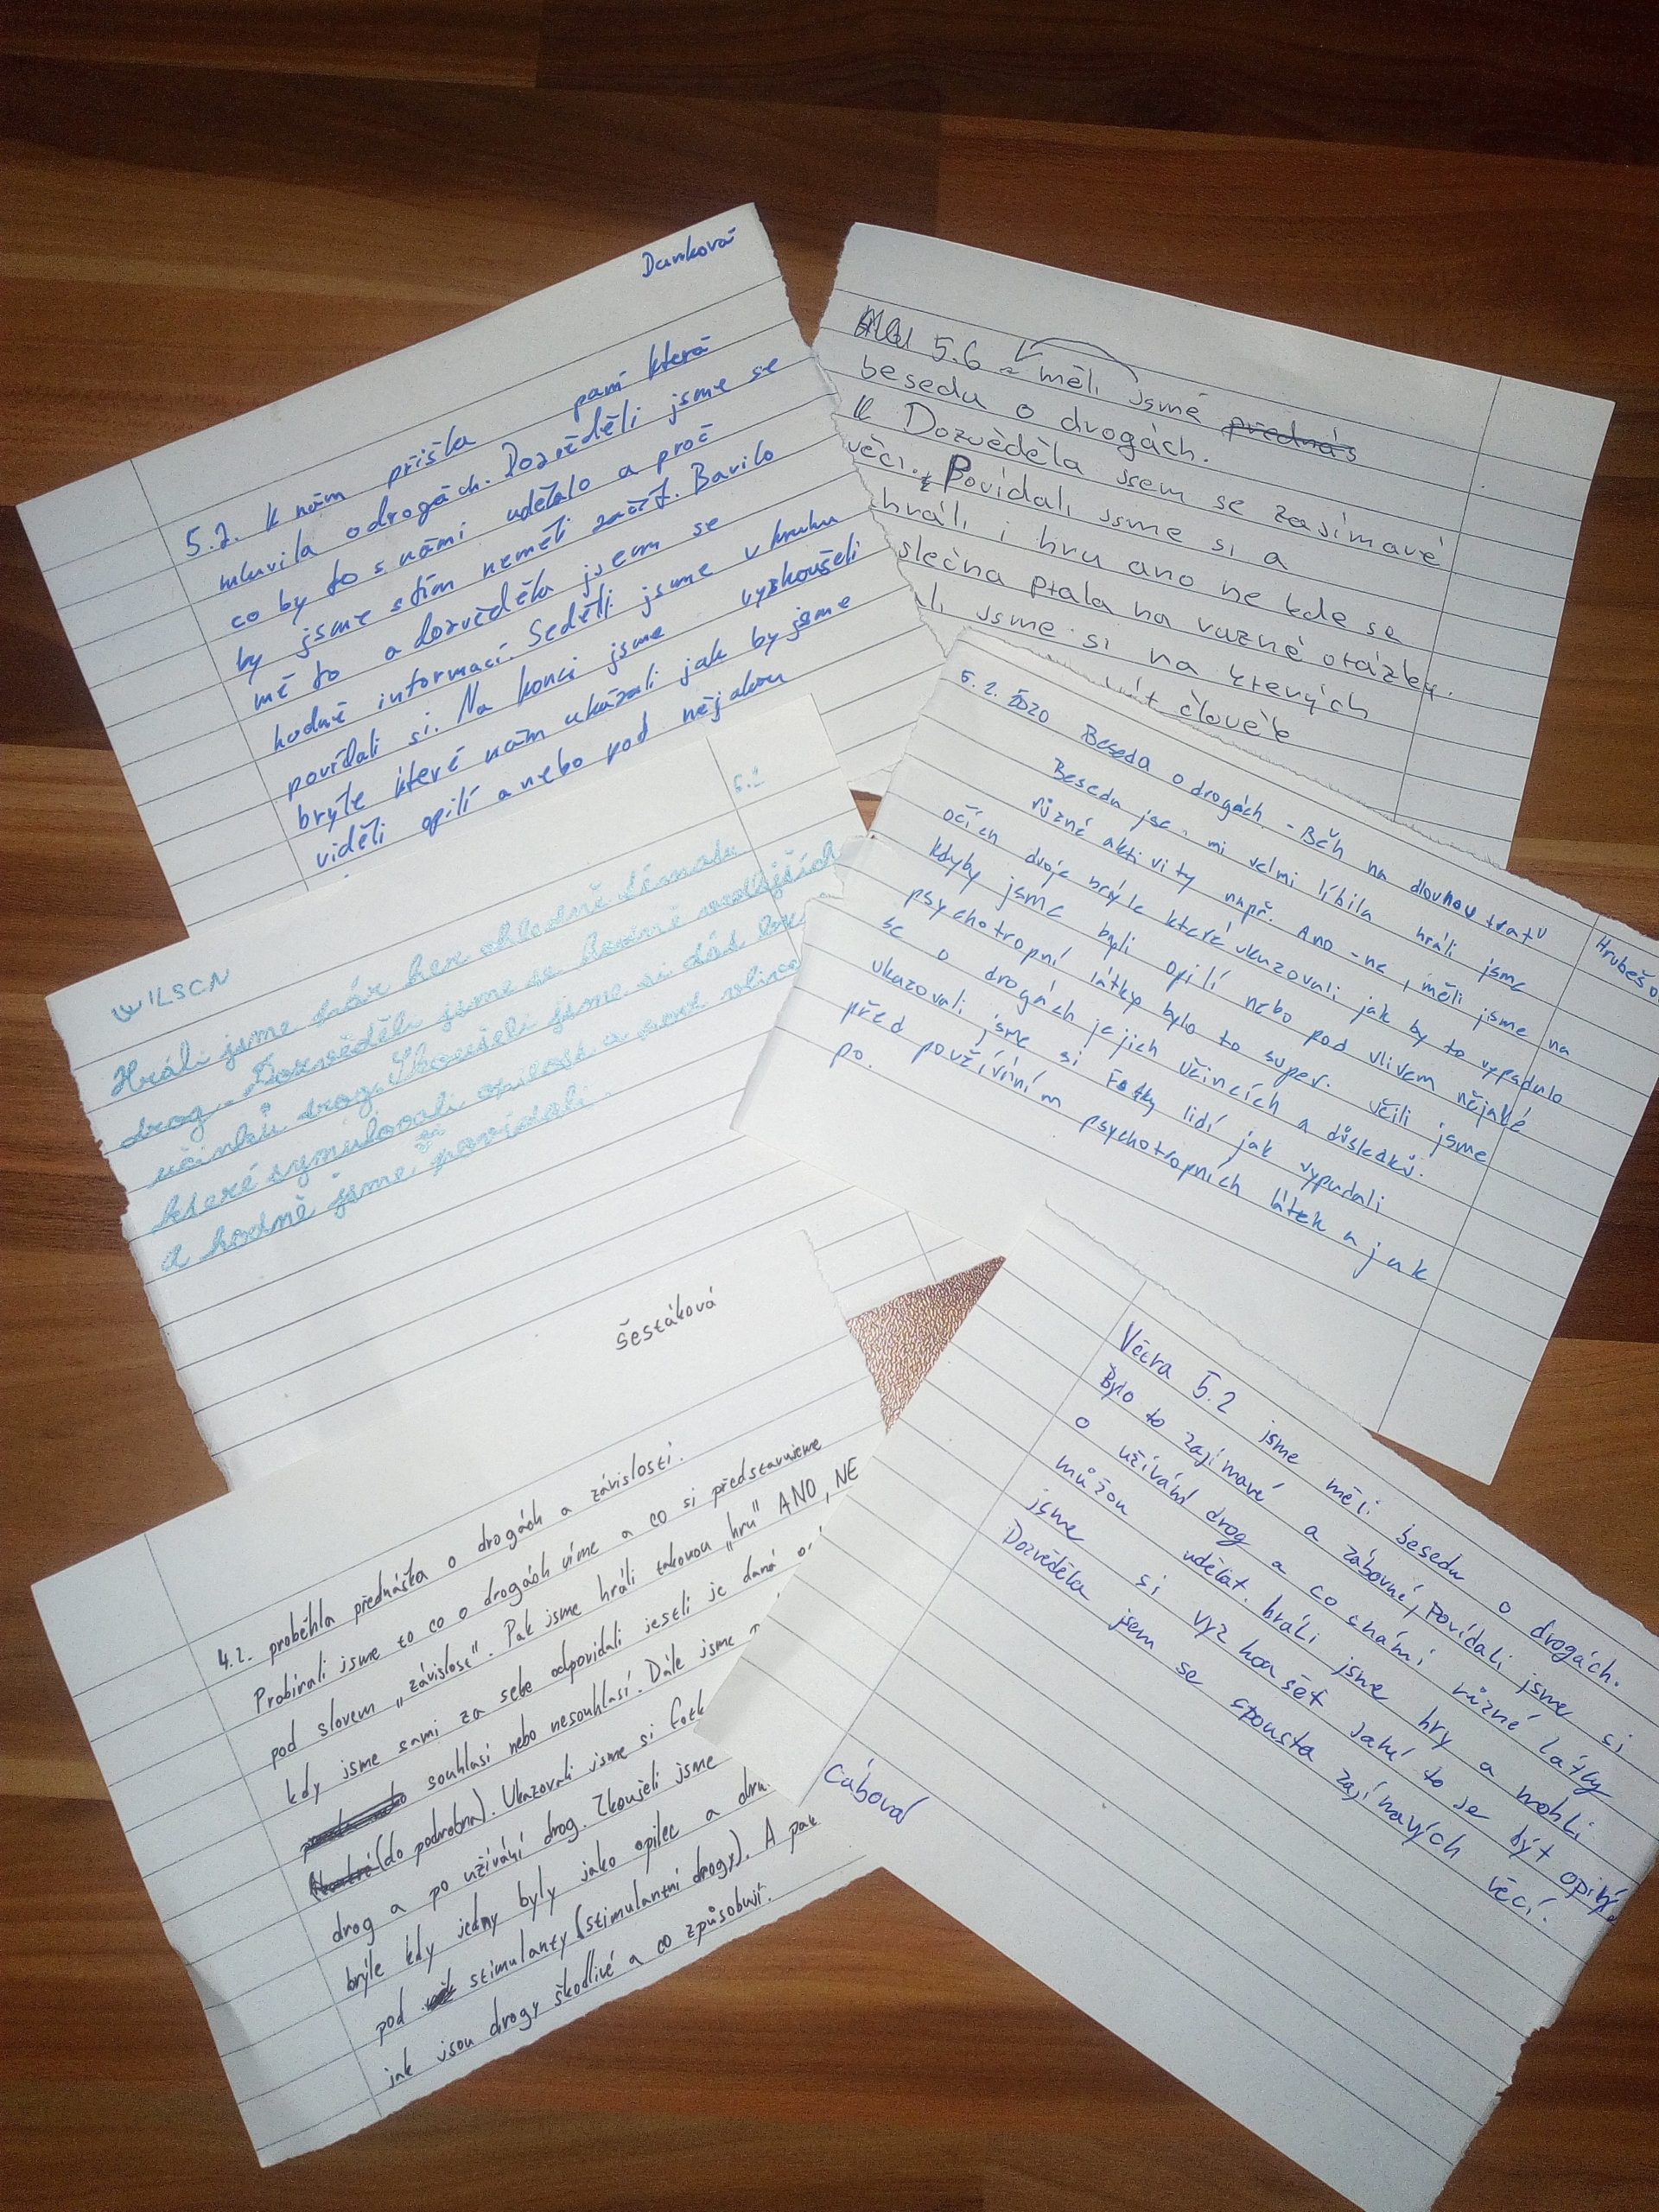 Danková
5.2. K nám přišla paní která
mluvila o drogách. Dozvěděli jsme se
co by to s námi udělalo a proč
by jsme stím neměli začít. Bavilo
mě to a dozvěděla jsem se
hodně informací. Seděli jsme v kruhu
povídali si. Na konci jsme vyzkoušeli
brýle které nám ukázali jak by jsme
viděli opilí anebo pod nějakou
5.6 měli jsme přednás
besedu o drogách.
Dozvěděla jsem se zajímavé
věci. Povídali jsme si a
hráli i hru ano ne kde se
slečna ptala na vazné otázky.
li jsme si na kterých
člověk
WILSCN
Hráli jsme pár her ohledně tématu
drog. Dozvěděli jsme se hodně
účinků drog. Zkoušeli jsme si dát
které symulovali opilost a pod vlivem
a hodně jsme povídali.
5.2. 2020 Beseda o drogách - Běh na dlouhou trať
Hrubešo
Beseda jse mi velmi líbila hráli jsme
různé aktivity např. Ano-ne, měli jsme na
očích dvoje brýle které ukazovali jak by to vypadalo
kdyby jsme byli opilí nebo pod vlivem nějaké
psychotropní látky bylo to super. Učili jsme
se o drogách jejich účincích a důsledků.
ukazovali jsme si Fotky lidí jak vypadali
před používáním psychotropních látek a jak
po.
Šestáková
4.2. proběhla přednáška o drogách a závislosti.
Probírali jsme to co o drogách víme a co si představujeme
pod slovem "závislost". Pak jsme hráli takovou "hru" ANO, NE
kdy jsme sami za sebe odpovídali jestli je daná
souhlasí nebo nesouhlasí. Dále jsme
(do podrobna). Ukazovali jsme si fotk
drog a po užívání drog. Zkoušeli jsme
brýle kdy jedny byly jako opilec a
pod stimulanty (stimulantní drogy). A pak
jak jsou drogy škodlivé a co způsobují.
Včera 5.2 jsme měli besedu o drogách.
Bylo to zajímavé a zábavné, Povídali jsme si
o užívání drog a co snámi různé látky
můžou udělat. hráli jsme hry a mohli
jsme si vyzkoušet jaké to je být opilý.
Dozvěděla jsem se spousta zajímavých věcí.
Cábová